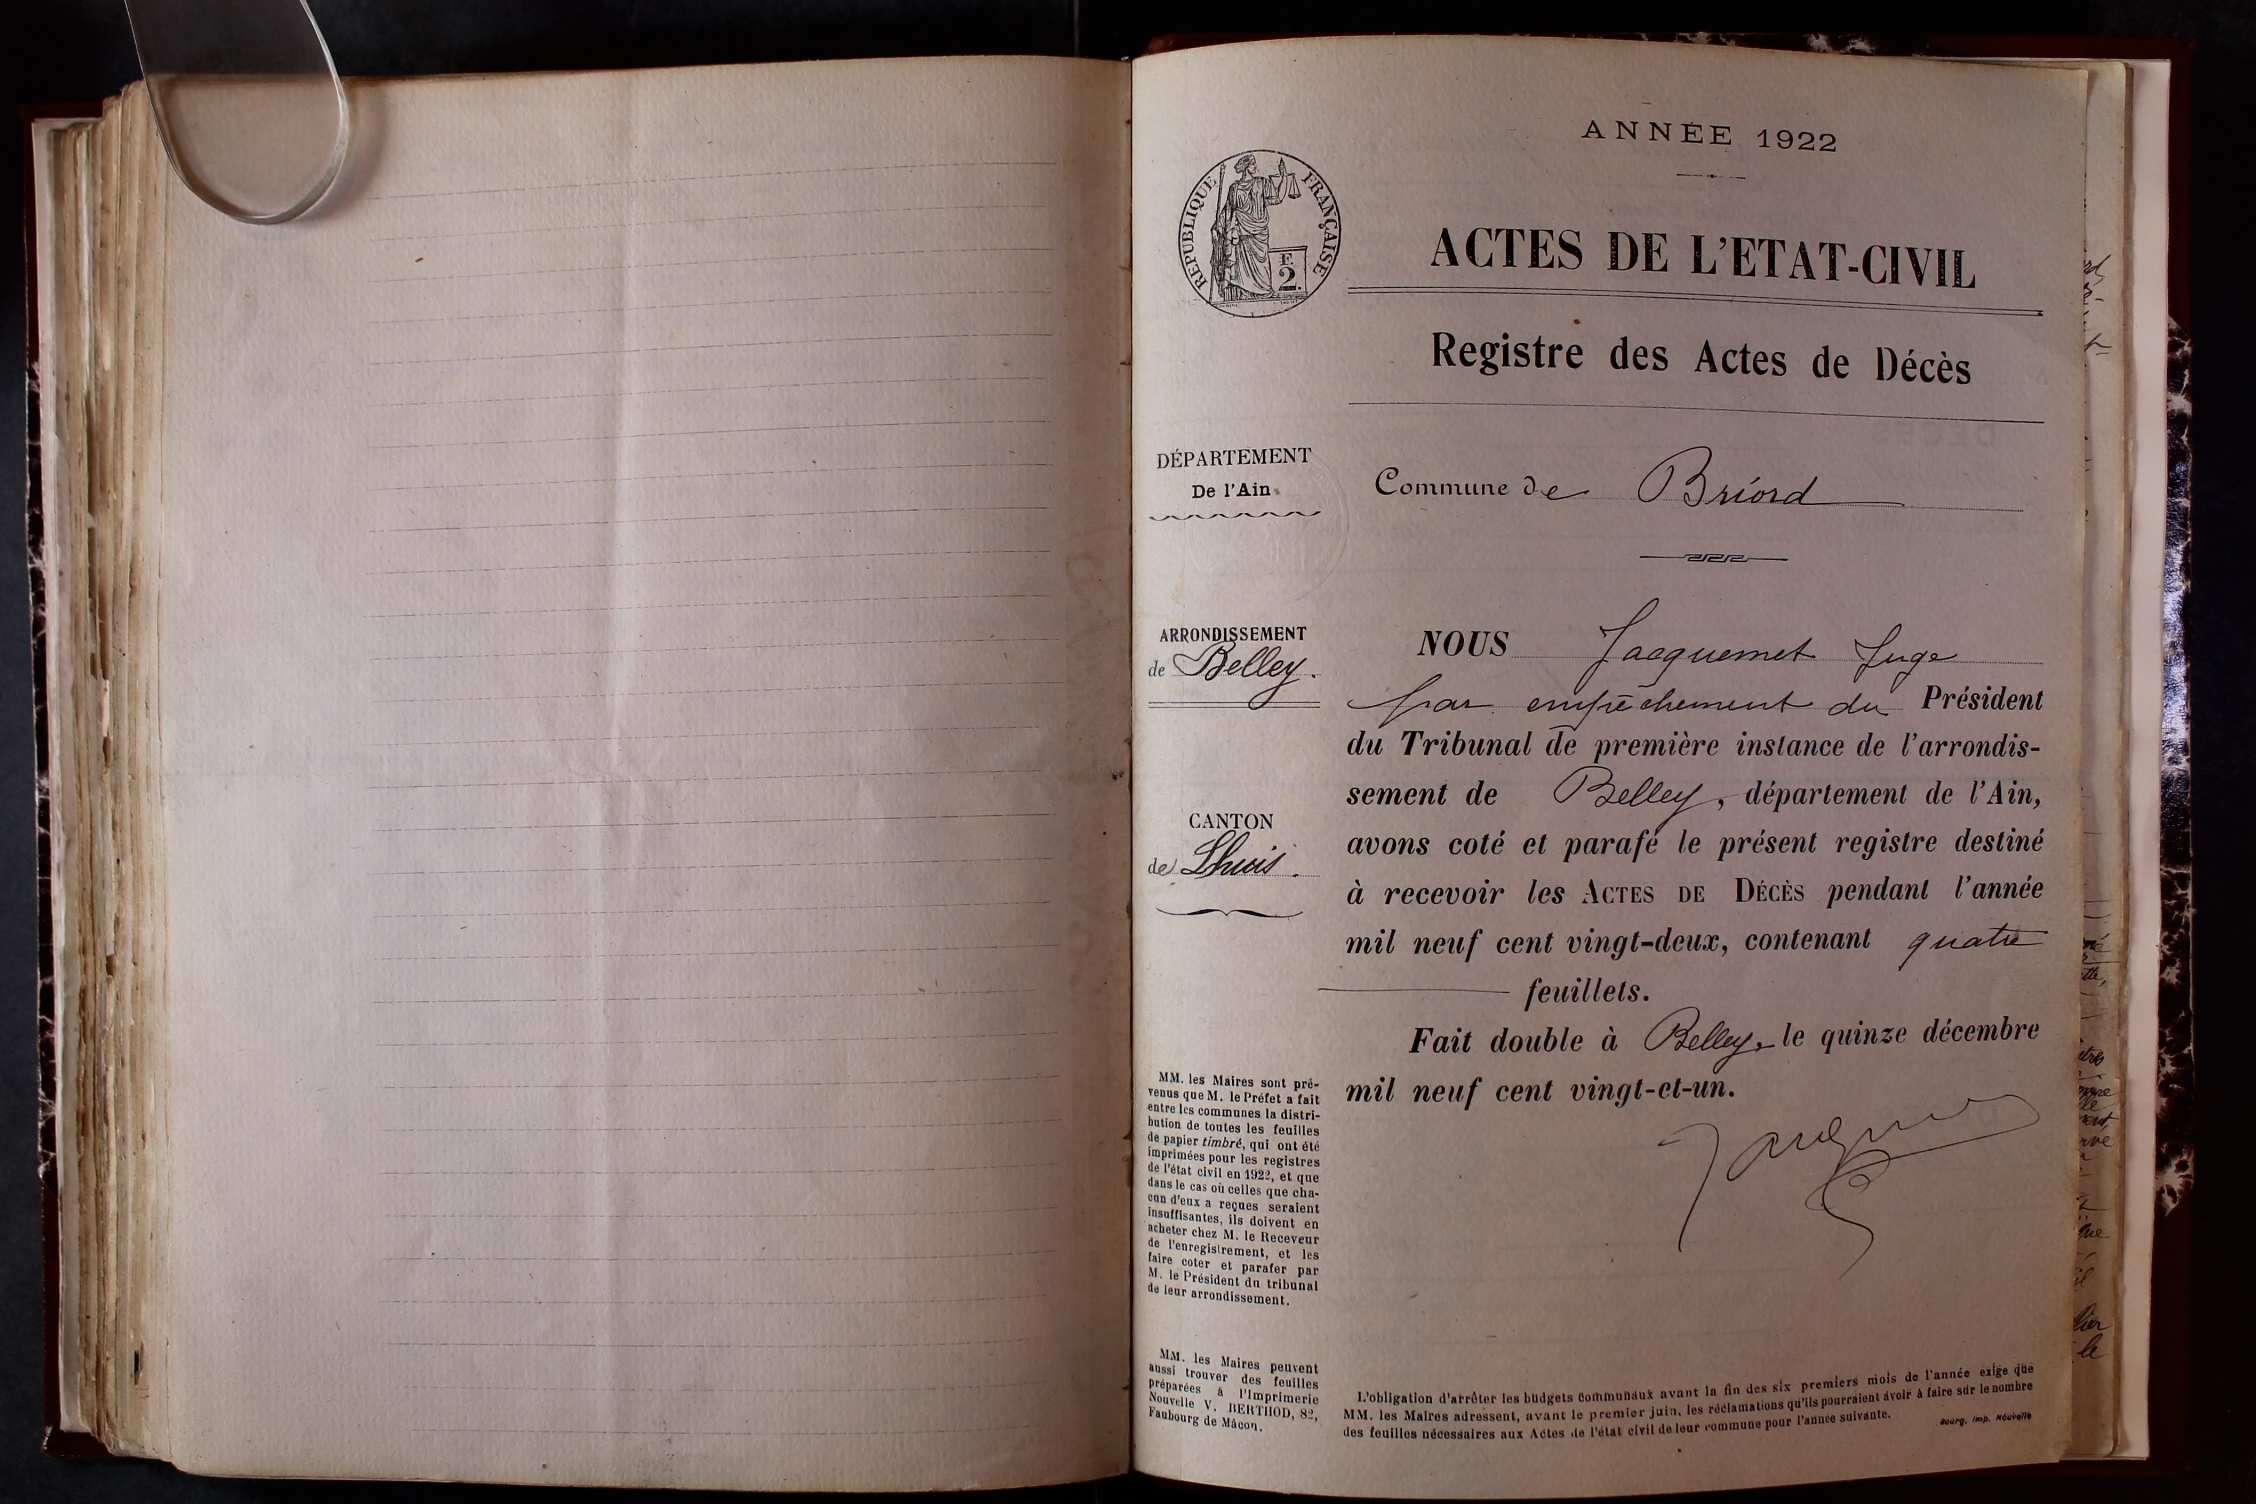 ANNÉE 1922
RÉPUBLIQUE FRANÇAISE
F.
2.
ACTES DE L'ETAT-CIVIL
Registre des Actes de Décès
DÉPARTEMENT
De l'Ain
Commune de Briord
ARRONDISSEMENT
de Belley.
CANTON
de Lhuis.
NOUS Jacquemet Juge
par empêchement du Président
du Tribunal de première instance de l'arrondis-
sement de Belley, département de l'Ain,
avons coté et parafé le présent registre destiné
à recevoir les ACTES DE DÉCÈS pendant l'année
mil neuf cent vingt-deux, contenant quatre
feuillets.
Fait double à Belley, le quinze décembre
mil neuf cent vingt-et-un.
MM. les Maires sont pré-
venus que M. le Préfet a fait
entre les communes la distri-
bution de toutes les feuilles
de papier timbré, qui ont été
imprimées pour les registres
de l'état civil en 1922, et que
dans le cas où celles que cha-
cun d'eux a reçues seraient
insuffisantes, ils doivent en
acheter chez M. le Receveur
de l'enregistrement, et les
faire coter et parafer par
M. le Président du tribunal
de leur arrondissement.
MM. les Maires peuvent
aussi trouver des feuilles
préparées à l'Imprimerie
Nouvelle V. BERTHOD, 82,
Faubourg de Mâcon.
L'obligation d'arrêter les budgets communaux avant la fin des six premiers mois de l'année exige que
MM. les Maires adressent, avant le premier juin, les réclamations qu'ils pourraient avoir à faire sur le nombre
des feuilles nécessaires aux Actes de l'état civil de leur commune pour l'année suivante.
Bourg, Imp. Nouvelle